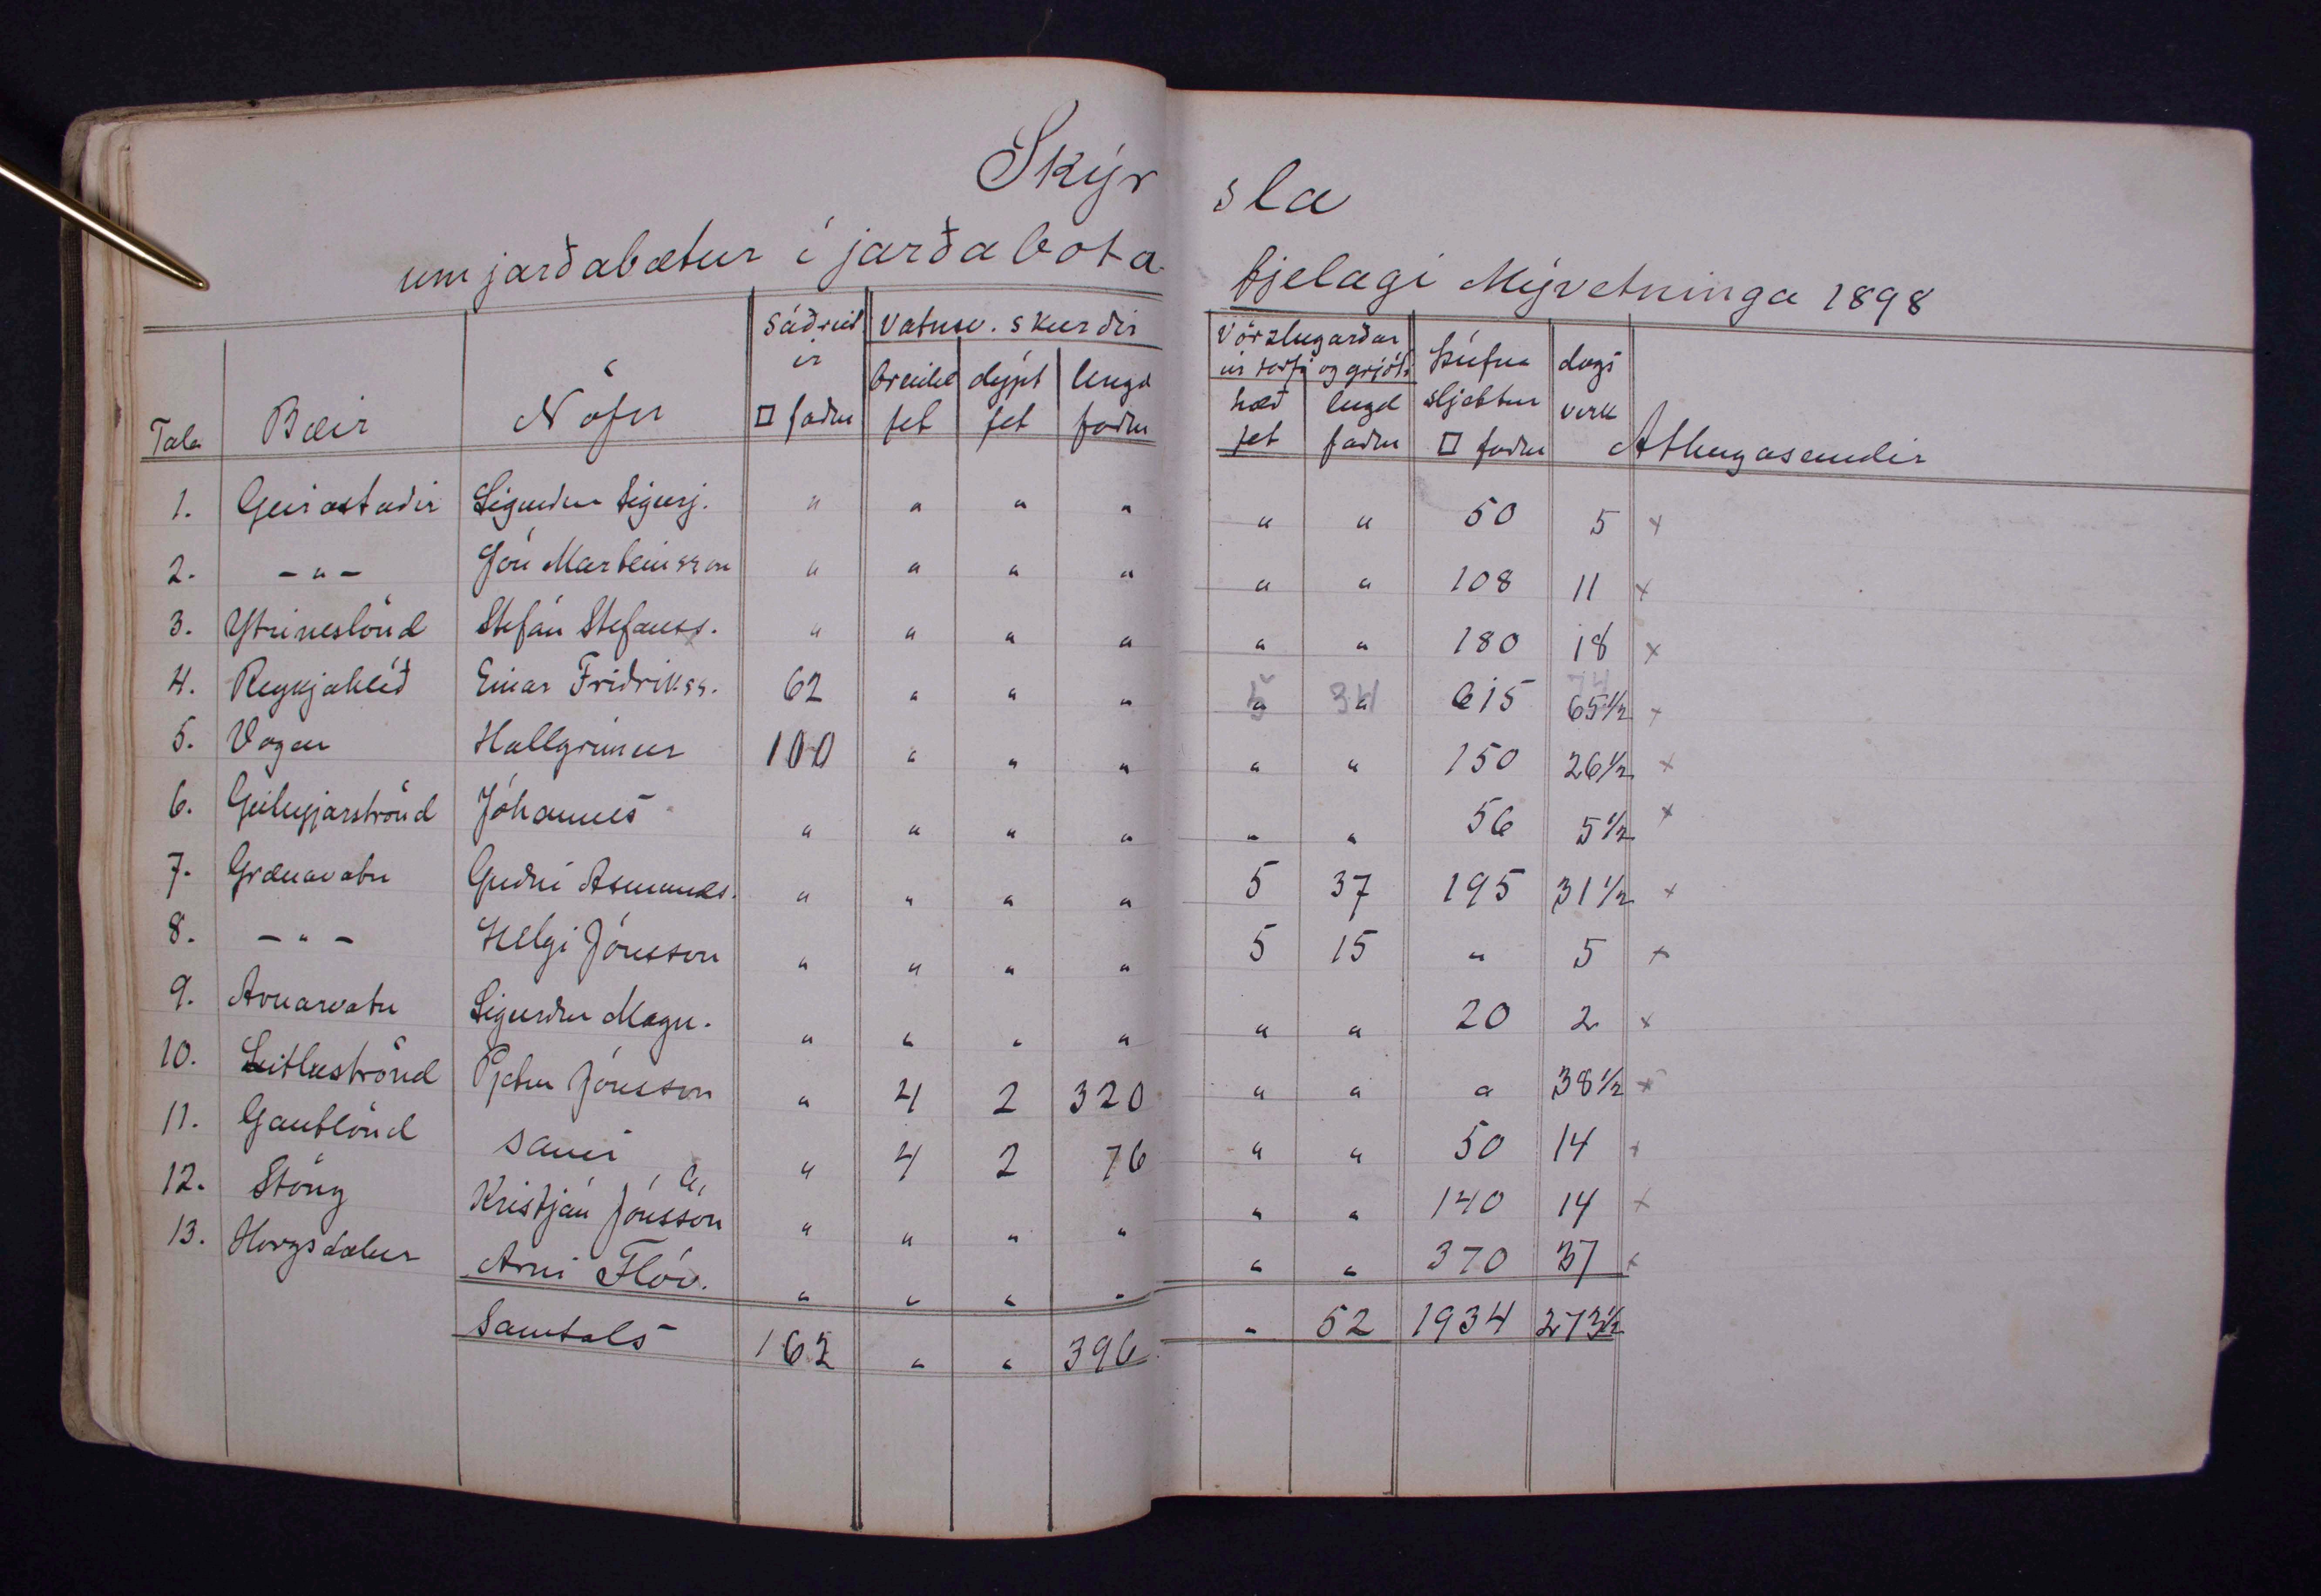 Skýrsla
um jarðabætur í jarðabótafjelagi Mývetninga 1898
Tala | Bæir | Nöfn | Sáðreitir □ faðm | Vatnsv. skurðir breidd fet | dýpt fet | lengd faðm | Vörzlugarðar úr torfi og grjóti hæð fet | lengd faðm | þúfna sljettur □ faðm | dags verk | Athugasemdir
1. Geirastaðir Sigurður Sigurj. " " " " " " 50 5 x
2. - " - Jón Marteinsson " " " " " " 108 11 x
3. Ytrineslönd Stefán Stefánss. " " " " " " 180 18 x
4. Reykjahlíð Einar Friðrikss. 62 " " " 5 " 34 " 615 74 65 1/2 x
5. Vogar Hallgrímur 100 " " " " " 150 26 1/2 x
6. Geiteyjarströnd Jóhannes " " " " " " 56 5 1/2 x
7. Grænavatn Guðni Asmunds. " " " " 5 37 195 31 1/2 x
8. - " - Helgi Jónsson " " " " 5 15 " 5 x
9. Arnarvatn Sigurður Magn. " " " " " " 20 2 x
10. Litluströnd Pjetur Jónsson " 4 2 320 " " " 38 1/2 x
11. Gautlönd sami " 4 2 76 " " 50 14 x
12. Stöng Kristján Jónsson " " " " " " 140 14 x
13. Horgsdalur Arni Flóv. " " " " " " 370 37 x
Samtals 162 " " 396 " 52 1934 273 1/2